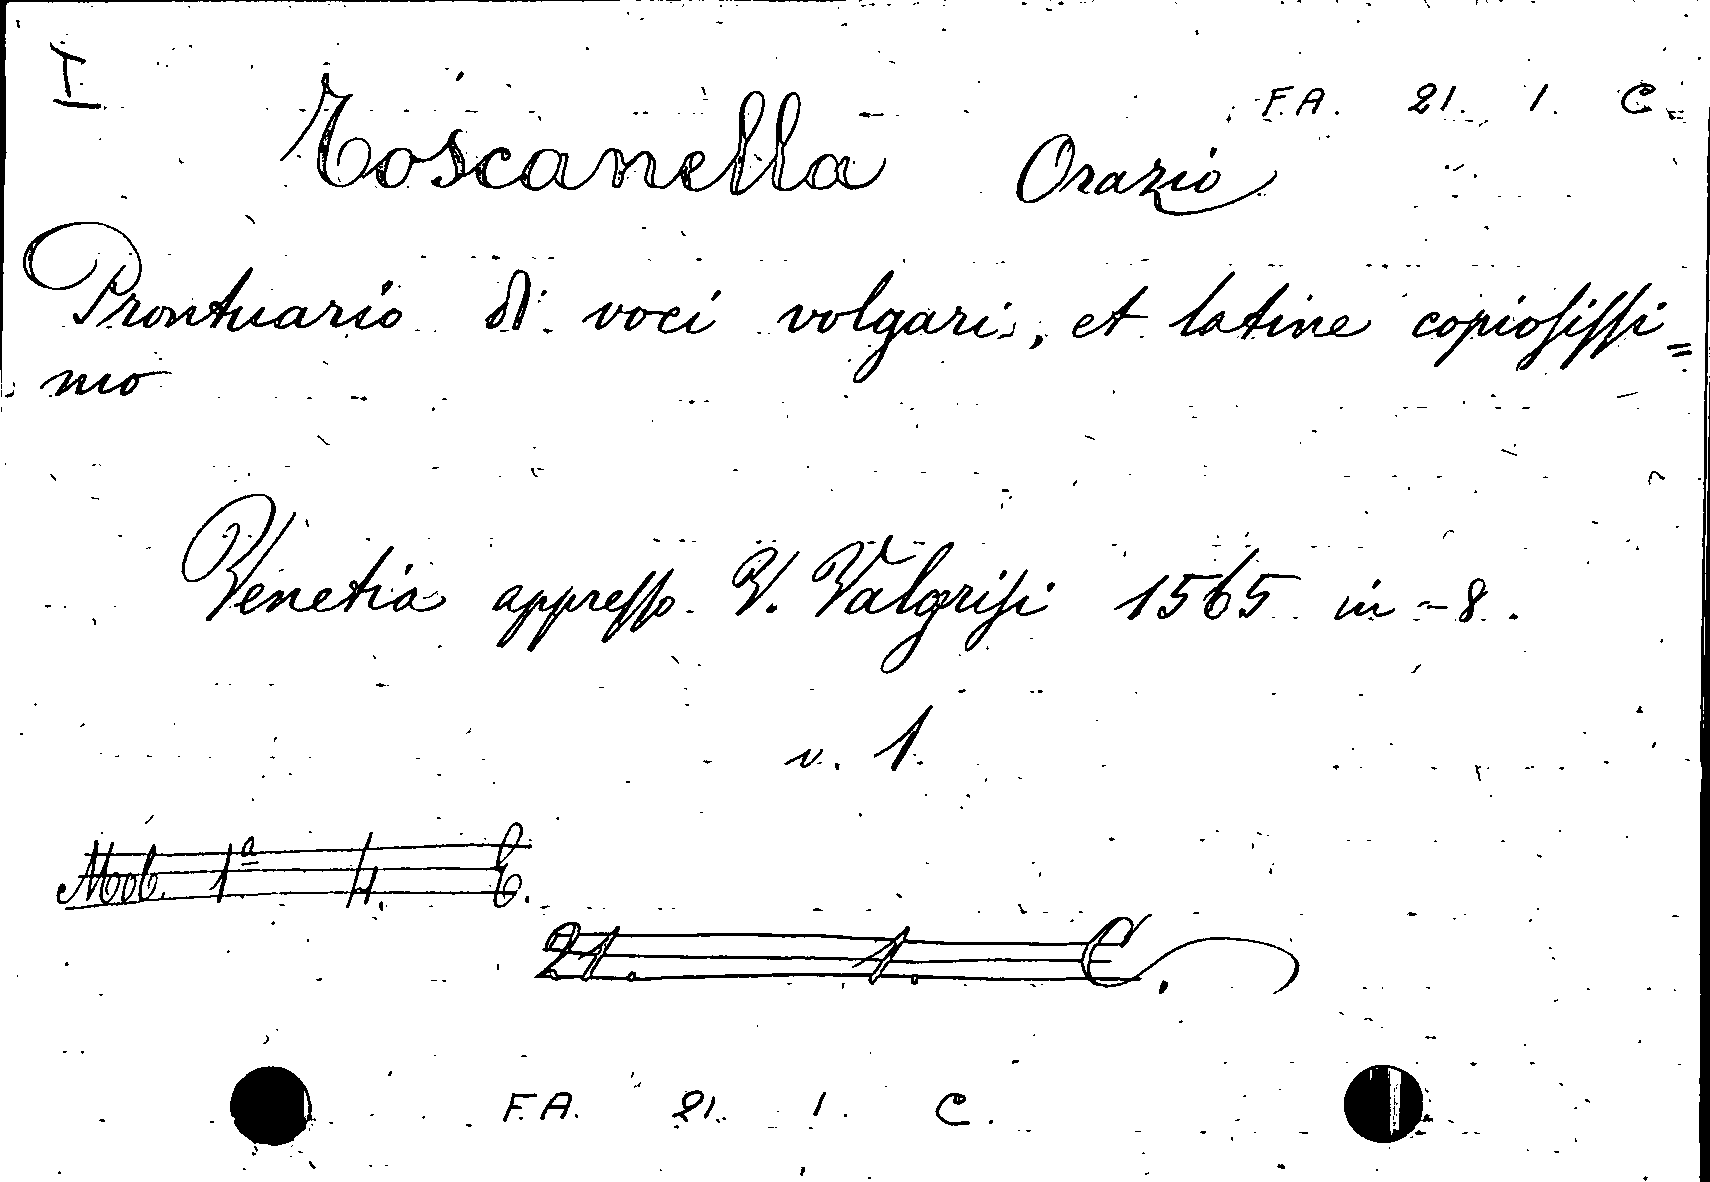 I
F.A. 21. 1. C.
Toscanella Orazio
Prontuario di voci volgari, et latine copiosissi=
mo
Venetia appresso V. Valgrisi 1565 in-8.
v. 1
Mob. 1ª 4. C.
21. 1. C.
F.A. 21. 1. C.